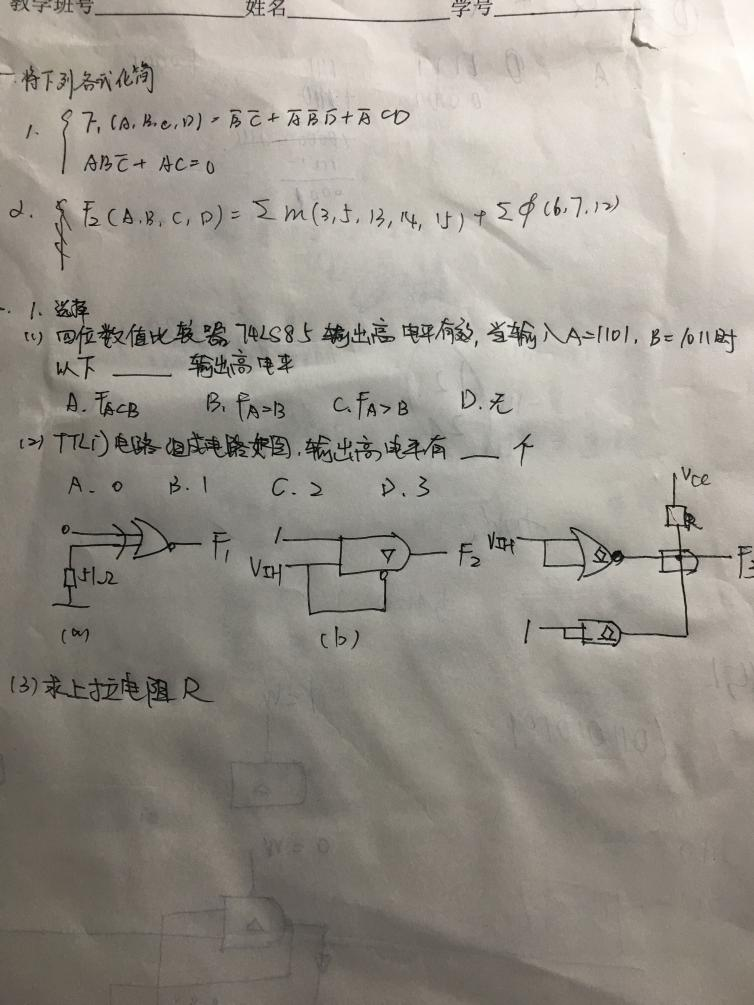 教学班号 姓名 学号
一.将下列各式化简
1. F₁(A,B,C,D)=B̅ C̅+A̅ B̅ D̅+A̅ CD
ABC̅+AC=0
2. F₂(A,B,C,D)=Σm(3,5,13,14,15)+Σφ(6,7,12)
1. 选择
(1) 四位数值比较器74LS85输出高电平有效,当输入A=1101,B=1011时
以下____输出高电平
A. FA<B B. FA=B C. FA>B D. 无
(2) TTL门电路组成电路如图,输出高电平有__个
A. 0 B. 1 C. 2 D. 3
VCC
R
0 F₁ 1 VIH F₂ VIH F₃
51Ω 1
(a) (b)
(3) 求上拉电阻R